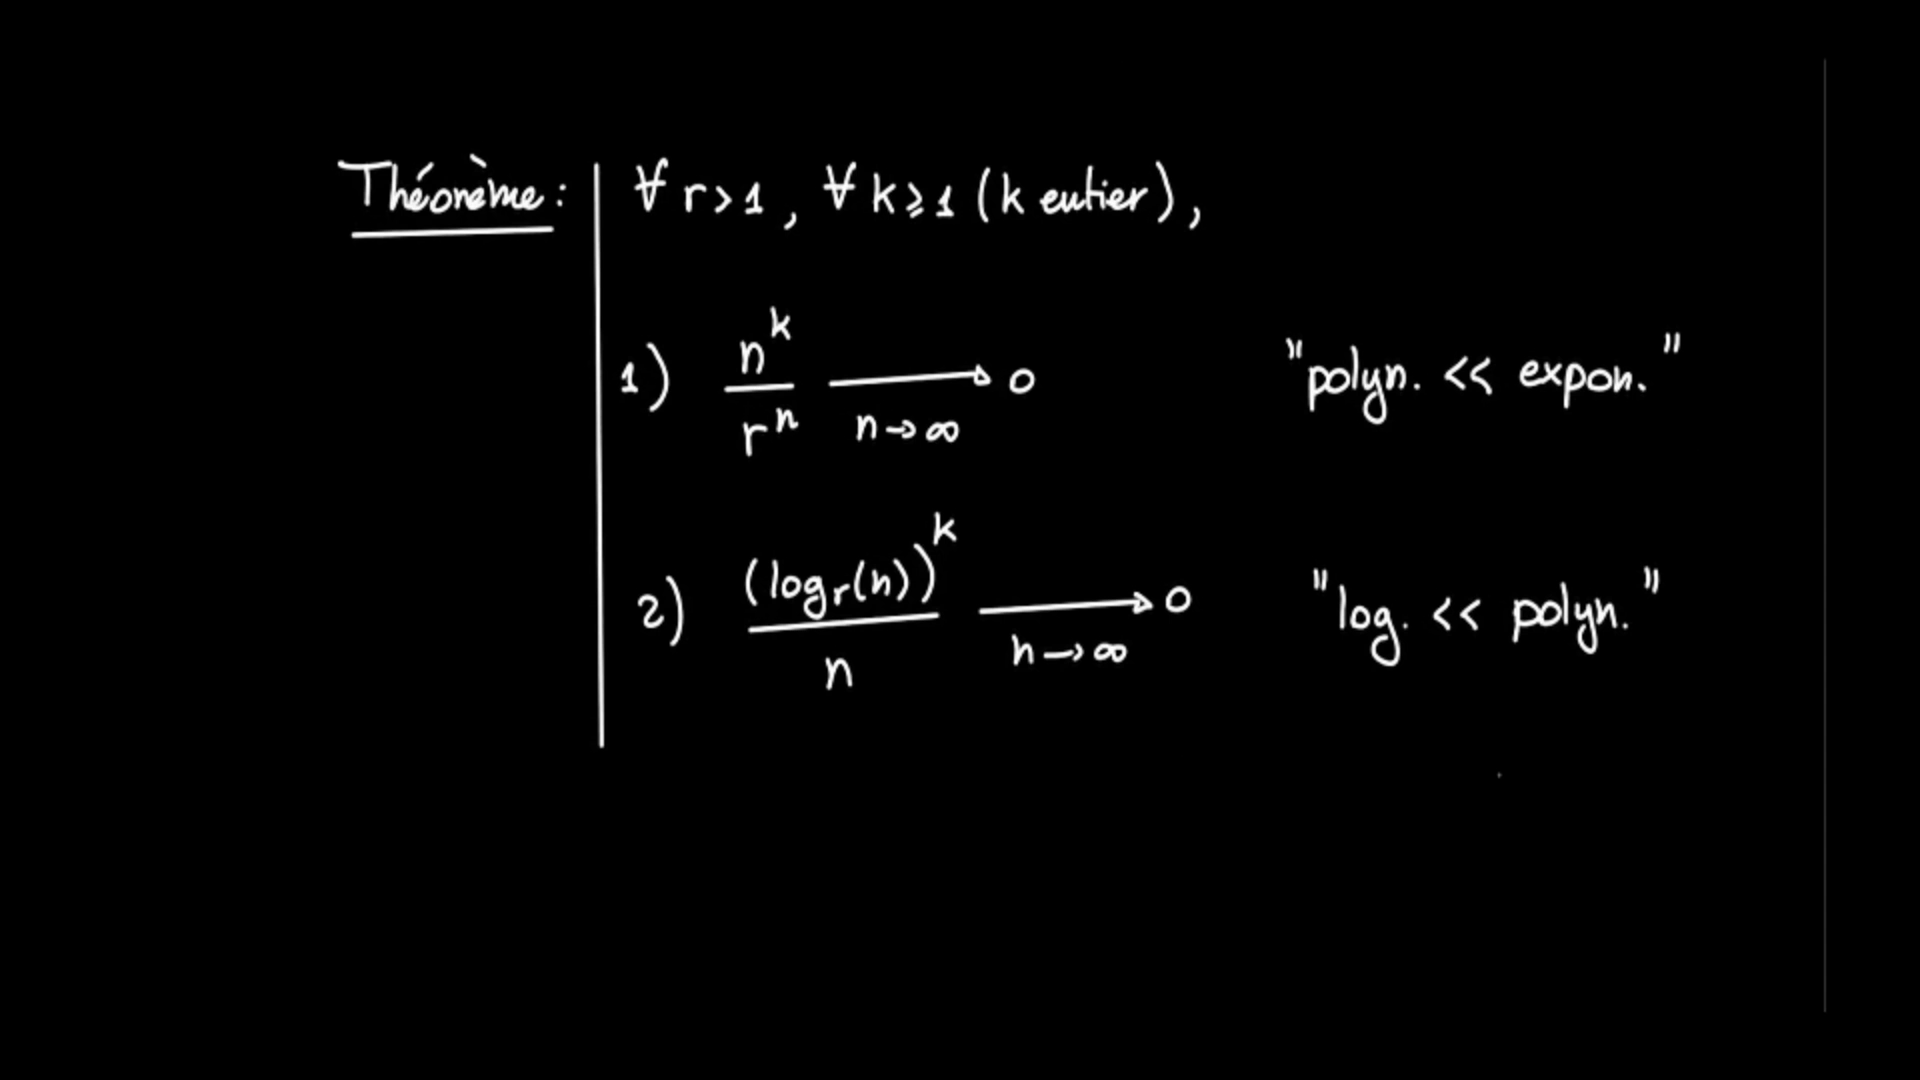 Théorème : ∀ r > 1, ∀ k ⩾ 1 (k entier),
1) n^k / r^n ⟶ 0 n→∞ "polyn. << expon."
2) (log_r(n))^k / n ⟶ 0 n→∞ "log. << polyn."